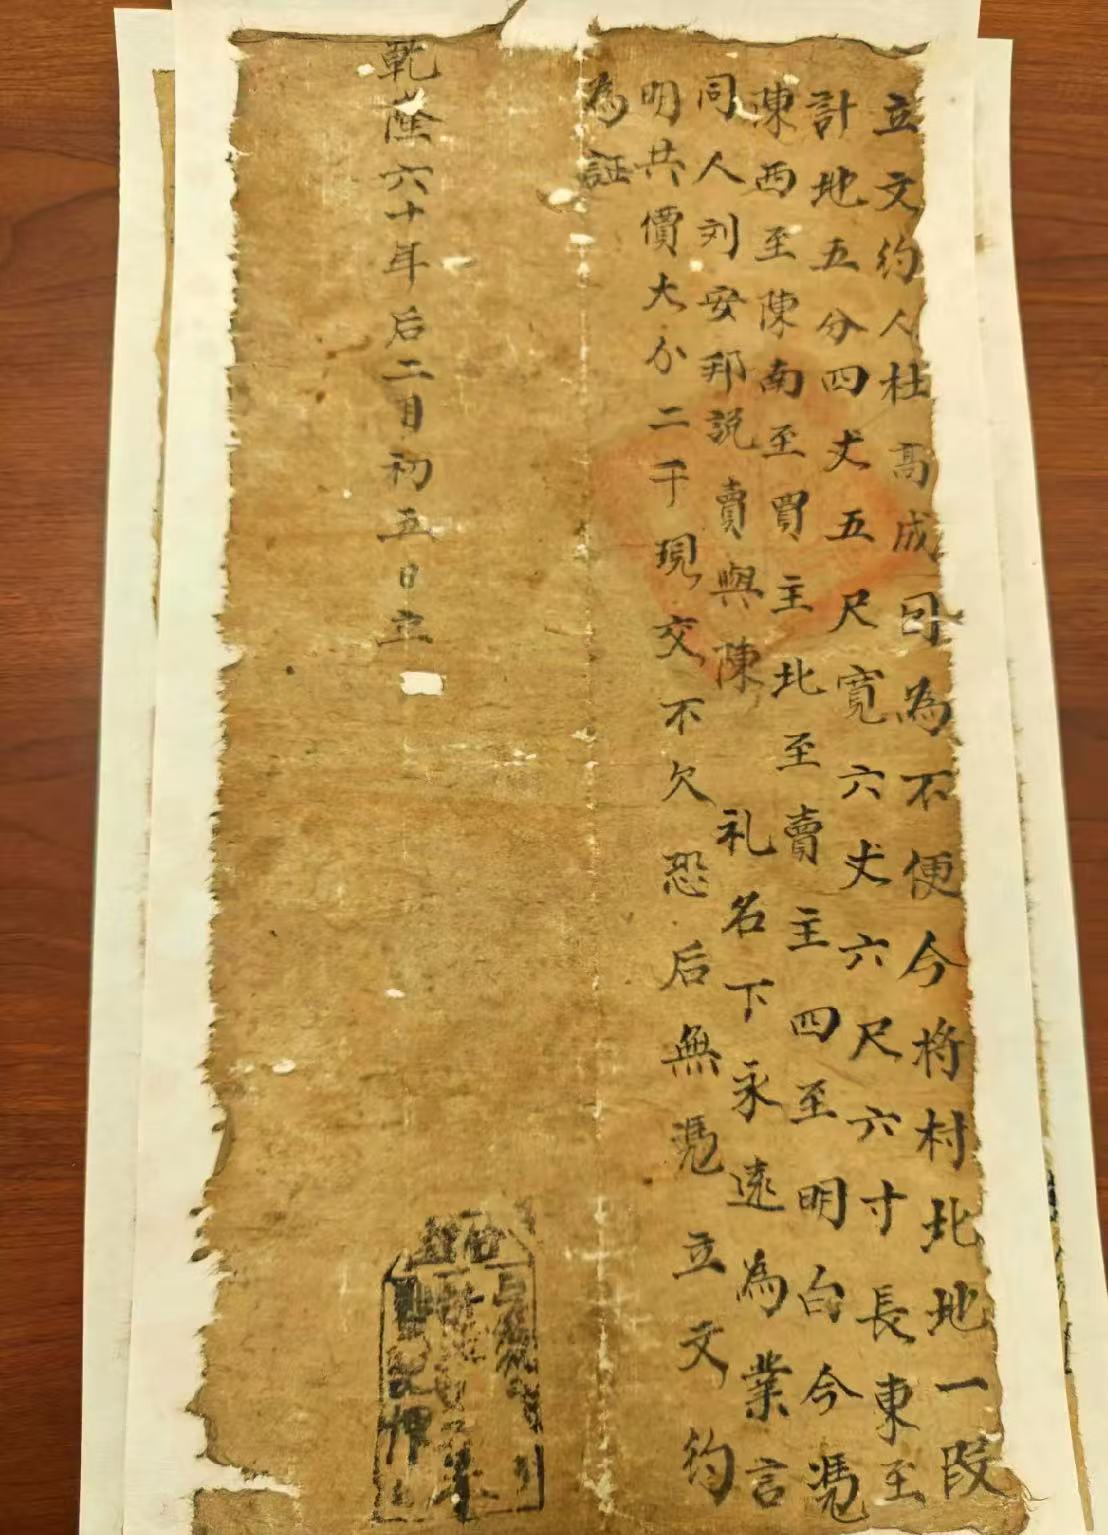 立文約人杜高成曰為不便今將村北地一段
計地五分四丈五尺寬六丈六尺六寸長東至
陳西至陳南至買主北至賣主四至明白今憑
同人刘安邦説賣與陳礼名下永遠為業言
明共價大分二千現交不欠恐后無憑立文約
為証
乾隆六十年后二月初五日立